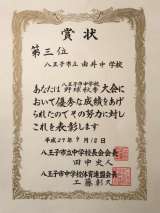 賞状
第三位
八王子市立由井中学校
八王子市中学校
あなたは野球秋季大会に
おいて優秀な成績をあげ
られたのでその努力に対し
これを表彰します
平成27年9月18日
八王子市立中学校長会会長
田中史人
八王子市中学校体育連盟会長
工藤彰久